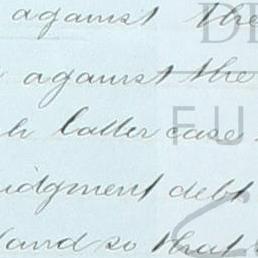 against the
against the
latter case
judgment debt
and so that